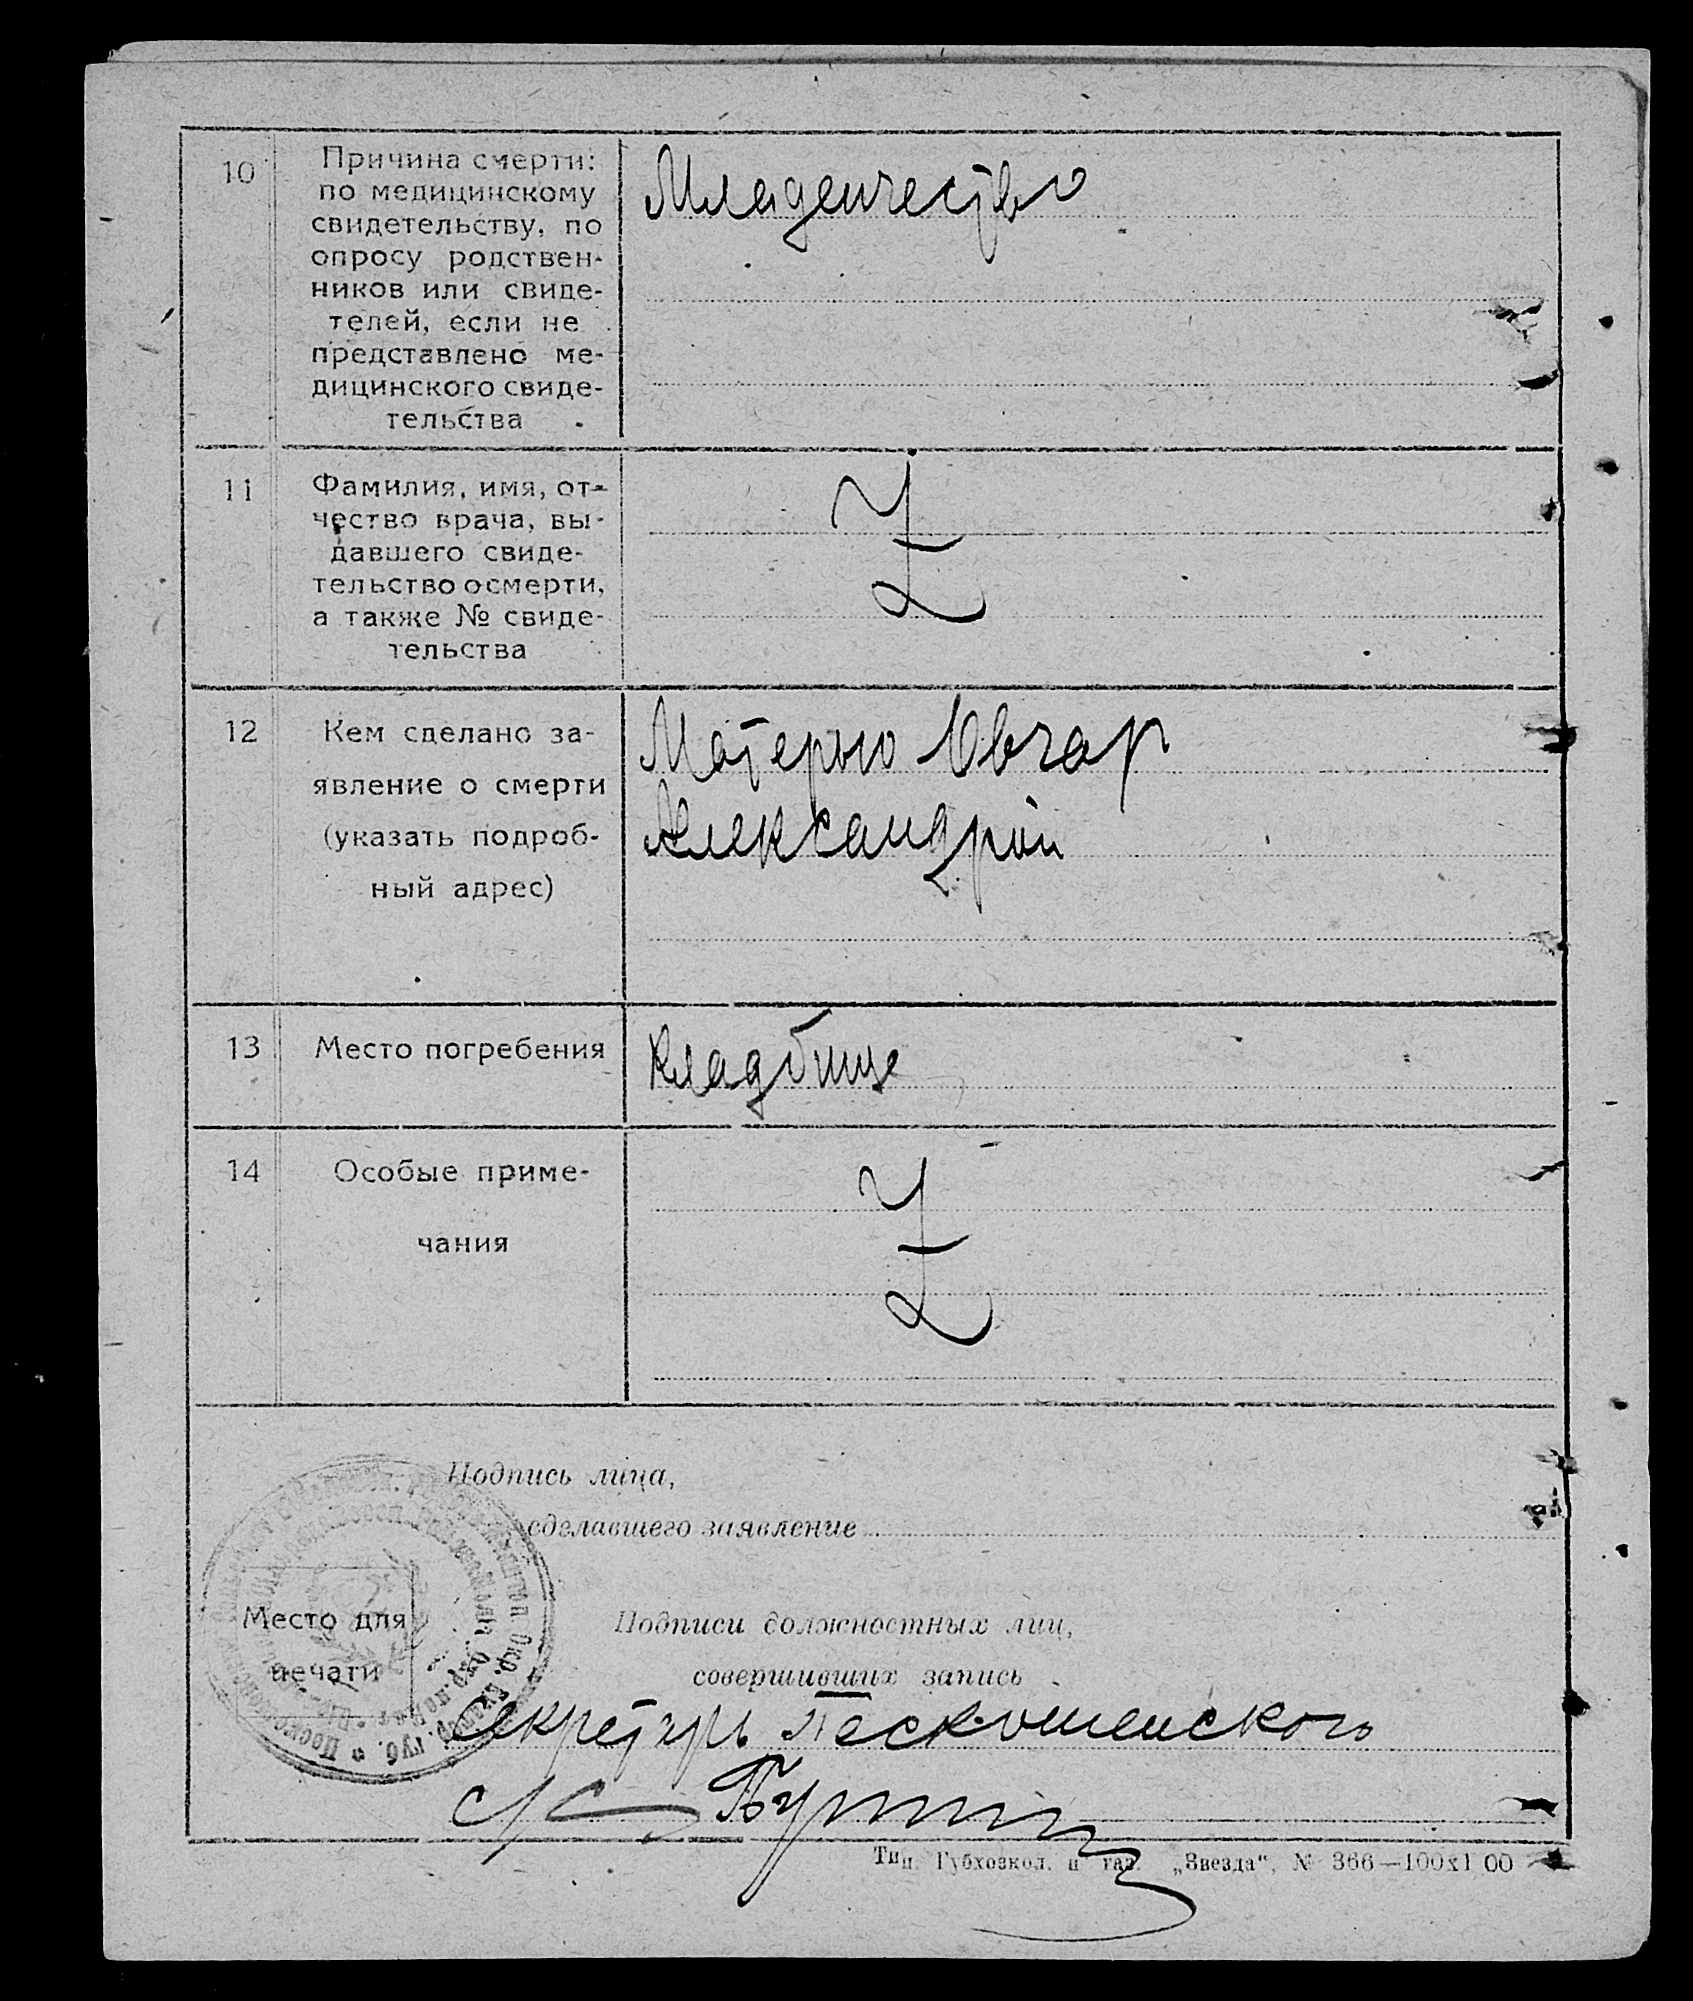 10
Причина смерти:
по медицинскому
свидетельству, по
опросу родствен-
ников или свиде-
телей, если не
представлено ме-
дицинского свиде-
тельства
Младенчество
11
Фамилия, имя, от-
чество врача, вы-
давшего свиде-
тельство о смерти,
а также № свиде-
тельства
Z
12
Кем сделано за-
явление о смерти
(указать подроб-
ный адрес)
Матерью Овчар
Александрой
13
Место погребения
Кладбище
14
Особые приме-
чания
Z
Подпись лица,
сделавшего заявление
Место для
печати
Подписи должностных лиц,
совершивших запись
Секретарь Пескошенского
с/с
Тип. Губхозкол. и газ. „Звезда", № 366—100х1 00